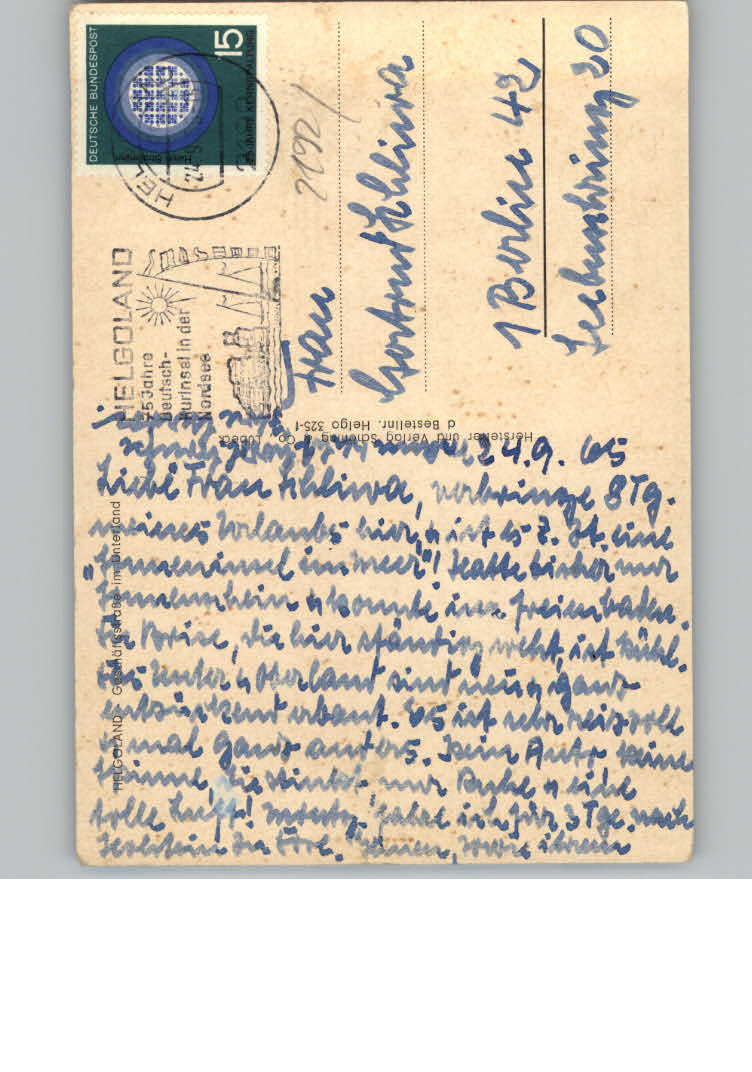 DEUTSCHE BUNDESPOST
15
HELGOLAND
75 Jahre
Deutsch-
Kurinsel in der
Nordsee
2192/
Frau
Schliwa
1 Berlin 42
Hersteller und Verlag Schöning & Co., Lübeck
d Bestellnr. Helgo 325-1
HELGOLAND Geschäftsstraße im Unterland
24.9. 65
Liebe Frau Schliwa, verbringe 8 Tg.
meines Urlaubs hier, u ist es z. Zt. eine
„Sonneninsel im Meer"! Hatte bisher nur
Sonnenschein u konnte im freien baden.
Die Brise, die hier ständig weht, ist kühl.
Das Unter u Oberland sind neu u ganz
entzückend erbaut. Es ist sehr reizvoll
u mal ganz anders. Keine Autos keine
Bäume, nur Ruhe u eine
tolle Luft! Montag fahre ich für 3 Tge. nach
Holstein Ihnen, sowie Ihrem